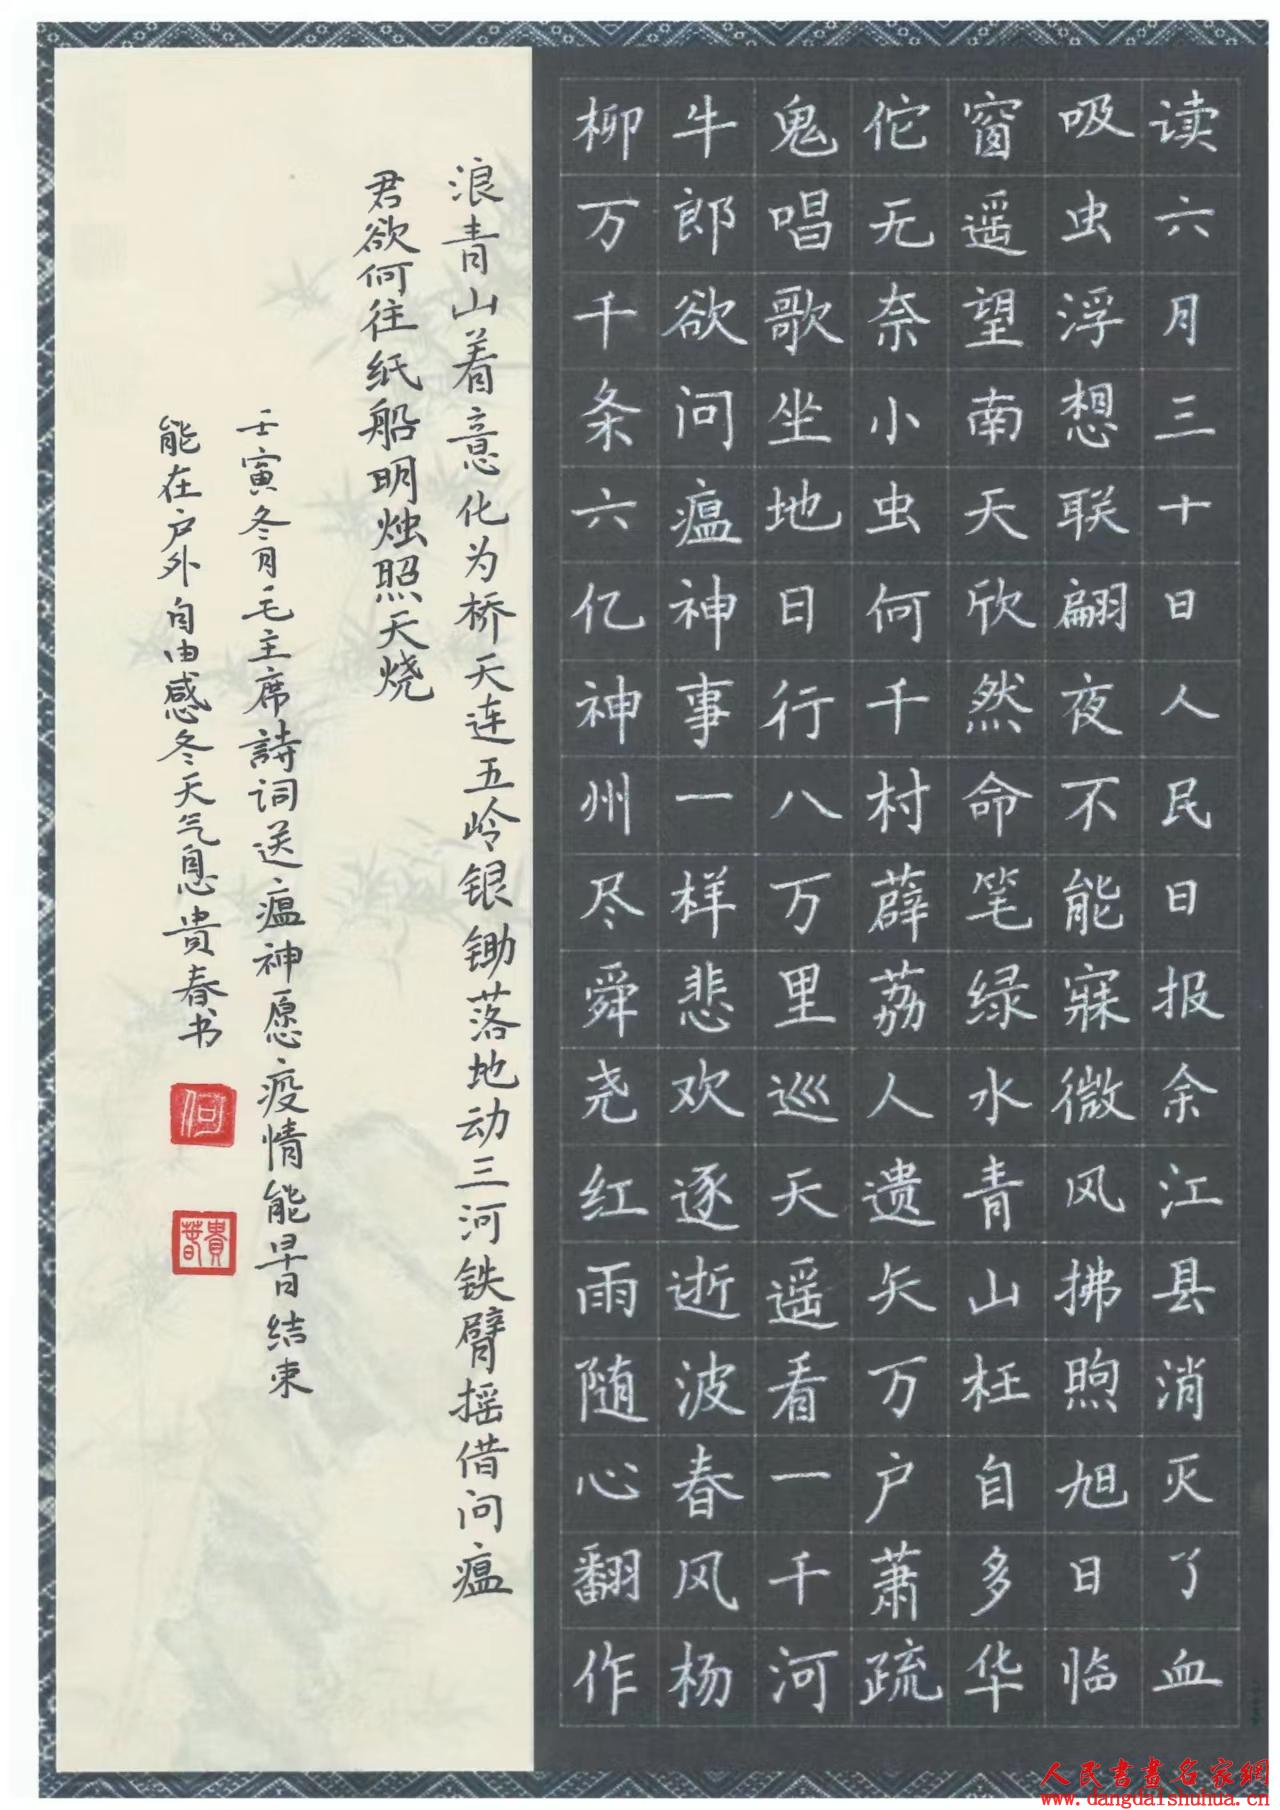 读六月三十日人民日报余江县消灭了血
吸虫浮想联翩夜不能寐微风拂煦旭日临
窗遥望南天欣然命笔绿水青山枉自多华
佗无奈小虫何千村薜荔人遗矢万户萧疏
鬼唱歌坐地日行八万里巡天遥看一千河
牛郎欲问瘟神事一样悲欢逐逝波春风杨
柳万千条六亿神州尽舜尧红雨随心翻作
浪青山着意化为桥天连五岭银锄落地动三河铁臂摇借问瘟
君欲何往纸船明烛照天烧
壬寅冬月毛主席詩词送瘟神愿疫情能早日结束
能在户外自由感冬天气息貴春书
何
貴春
人民書畫名家網
www.dangdaishuhua.cn